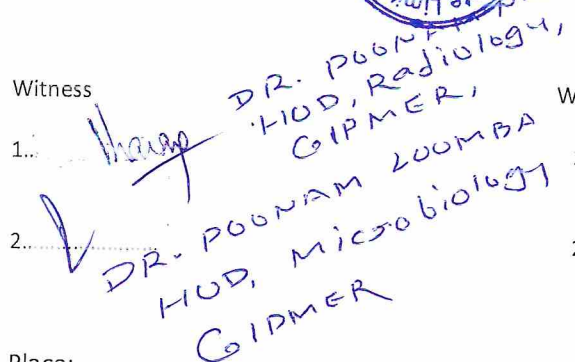 Witness
DR. POONAM
HOD, Radiology,
GIPMER,
W
1..
DR. POONAM LOOMBA
HOD, Microbiology
GIPMER
2..
Place: